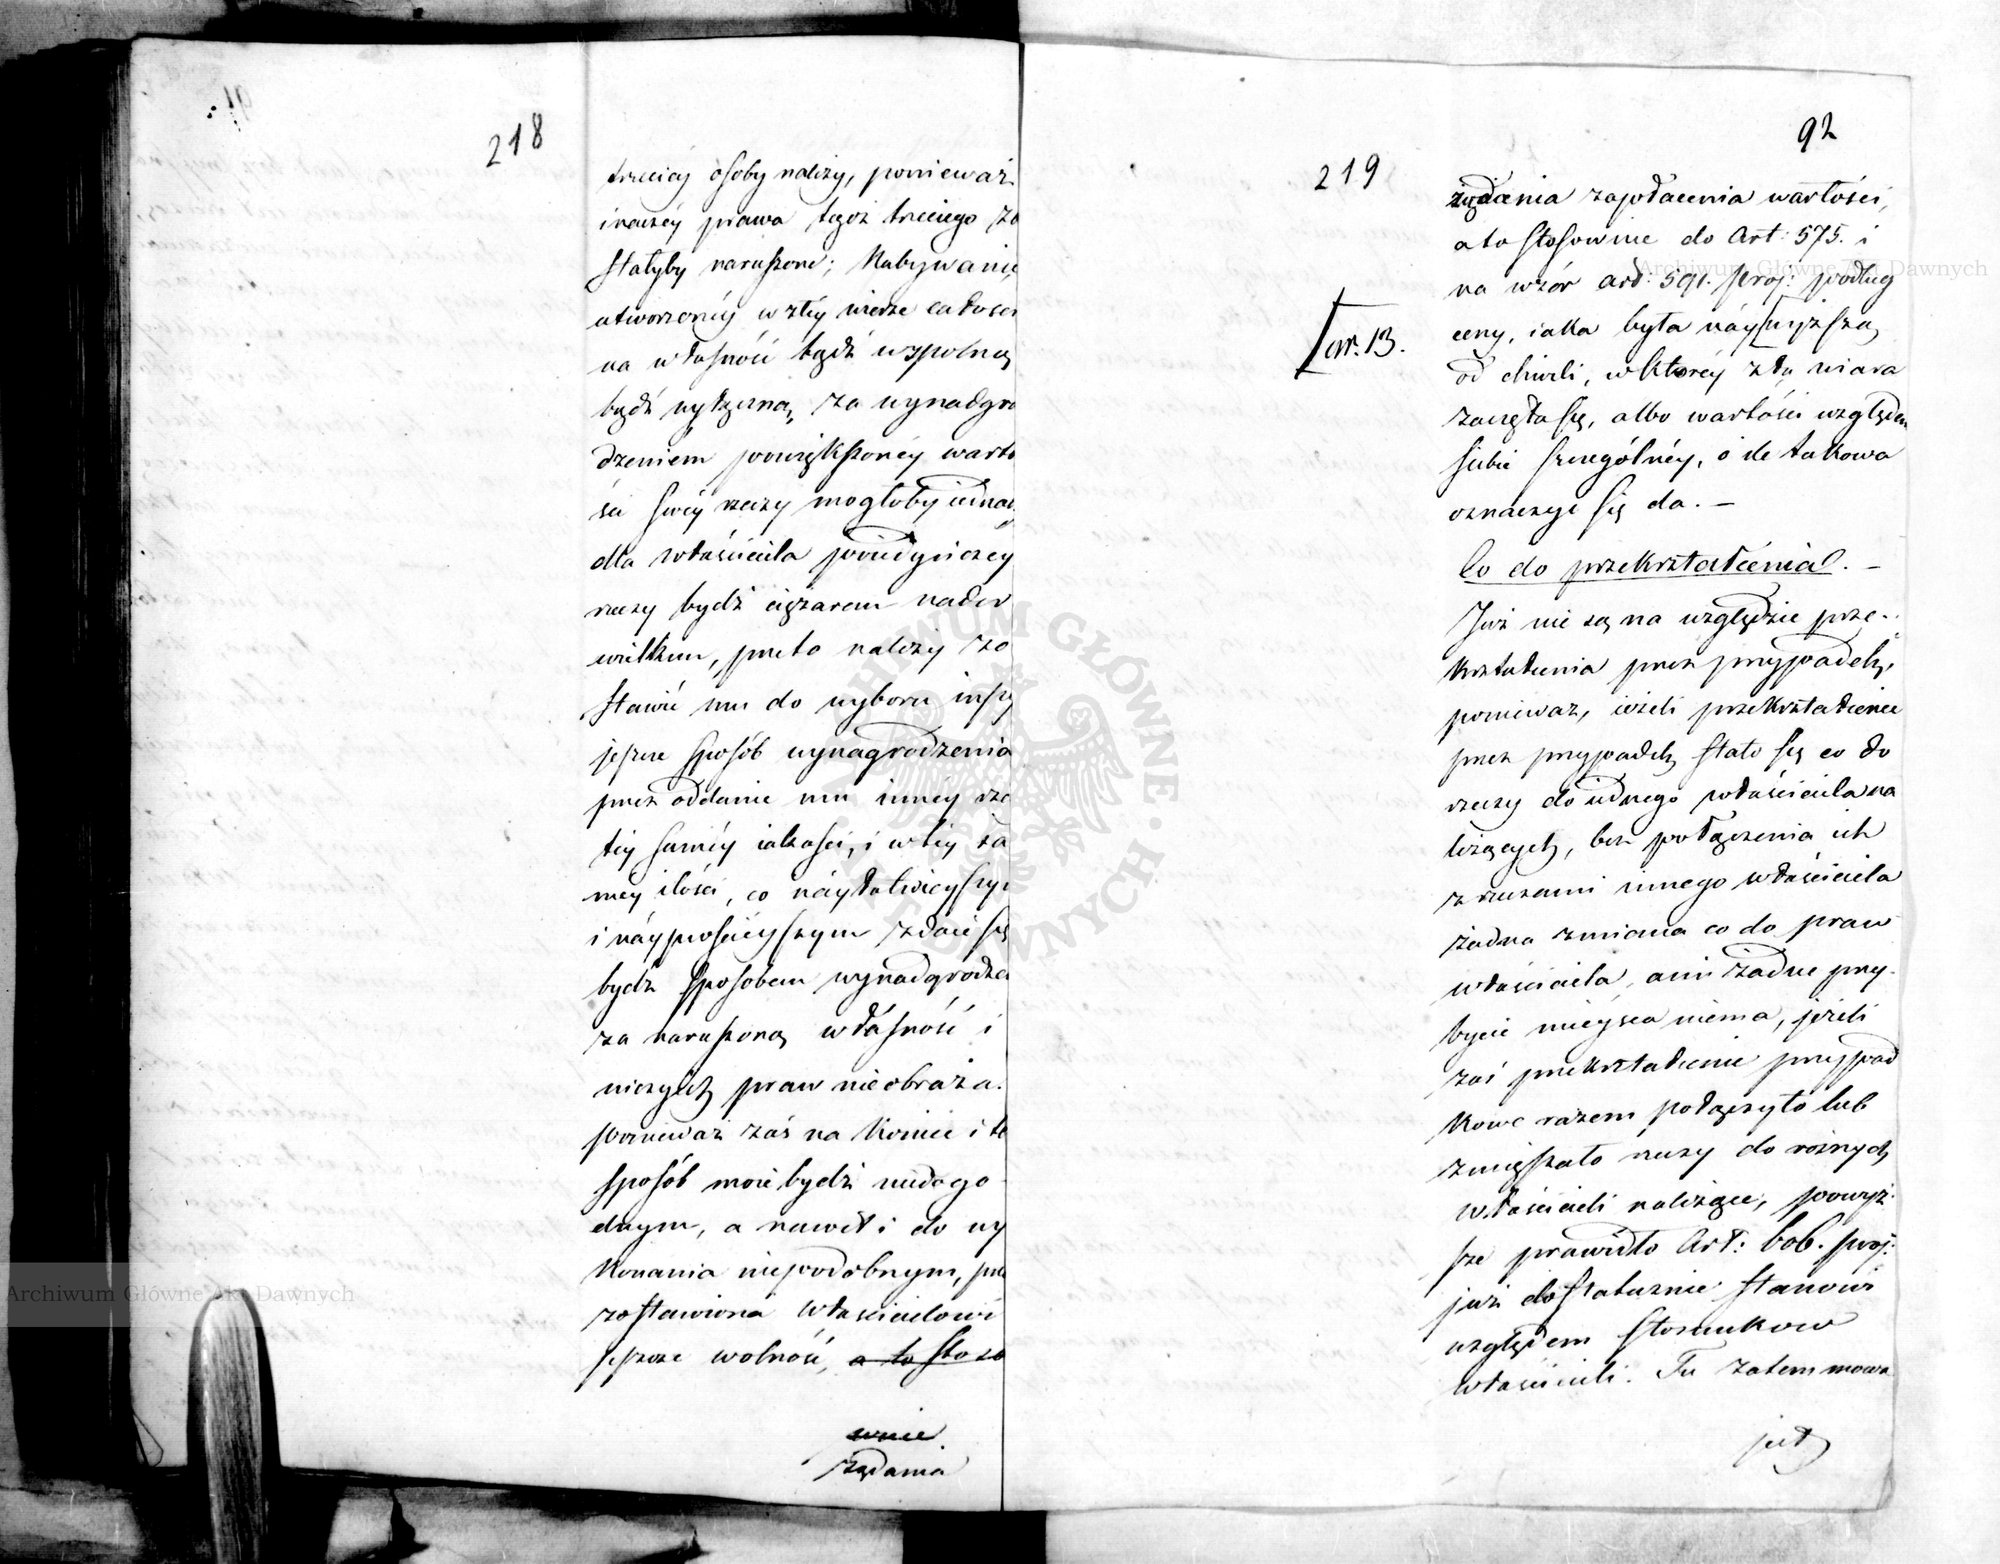 218
trzeciey osoby należy, ponieważ
inaczéy prawa tegoż trzeciego zo
stałyby naruszone; Nabywanie
utworzonéy w złéy wierze całości
na własność bądź wspolną
bądź wyłączną za wynadgro
dzeniem powiększonéy warto
ści swéy rzeczy mogłoby iednak
dla właściciela poiedyńczey
rzeczy bydź ciężarem nader
wielkim, przeto należy zo
stawić mu do wyboru inszy
jeszcze sposób wynagrodzenia
przez oddanie mu innéy rze
téy saméy iakości, i w téy sa
méy ilości, co náyłatwieyszym
i náyprościeyszym zdaie się
bydź sposobem wynadgrodze
za naruszoną własność i
niczyich praw nieobraża.
ponieważ zaś na koniec i te
sposób może bydź niedogo
dnym, a nawet i do wy
konania niepodobnym, prze
zostawiona właścicielowi
jeszcze wolność, a to stoso
wnie
żądania
92
219
żądania zapłacenia wartości,
a to stosownie do Art: 575. i
na wzór art: 591. proj: podług
ceny, iaka była náy[wyższą
[ar. 13.
od chwili, w którey zła wiara
zaczęła się, albo wartości względem
siebie szczególnéy, o ile takowa
oznaczyć się da. –
Co do przekształcenia. –
Już nie są na względzie prze-
kształcenia przez przypadek,
ponieważ, ieżeli przekształcenie
przez przypadek stało się co do
rzeczy do iednego właściciela na
leżących, bez połączenia ich
z rzeczami innego właściciela
żadna zmiana co do praw
właściciela, ani żadne przy-
bycie mieysca niema, jeżeli
zaś przekształcenie przypad
kowe razem połączyło lub
zmięszało rzeczy do różnych
właścicieli należące, powyż-
sze prawidło Art: 606. proj:
już dostatecznie stanowi
względem stosunkow
właścicieli. Tu zatem mowa
jest
Archiwum Główne Akt Dawnych
Archiwum Główne Akt Dawnych
ARCHIWUM GŁÓWNE AKT DAWNYCH